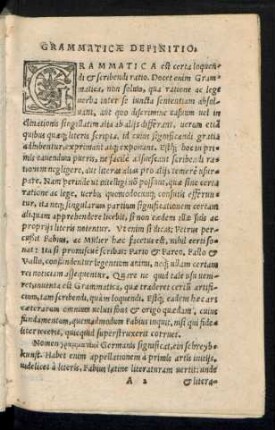 GRAMMATICÆ DEFINITIO.
GRAMMATICA est certa loquen-
di & scribendi ratio. Docet enim Gram-
matica, non solum, qua ratione ac lege
uerba inter se iuncta sententiam absol-
uant, aut quo discrimine casuum uel in
clinationis singulatim alia ab alijs differant, uerum eti
quibus quæq; literis scripta, id cuius significandi gratia
adhibentur, exprimant atq; exponant. Estq; hoc in pri-
mis cauendum pueris, ne facile assuescant scribendi ratio-
nem negligere, aut literas alias pro alijs temere usur-
pare. Nam perinde ut intelligi nõ possunt, quæ sine certa
ratione ac lege, uerba, quemodocunq; confusa efferun-
tur, ita neq; singularum partium significationem certam
aliquam apprehendere licebit, si non eædem suis ac
proprijs literis notentur. Vt enim si dicat: Petrus per-
cussit Fabius, ac Mulier hæc facetus est, nihil certi so-
nat: Ita si promiscuè scribas: Pario & Pareo, Fallo &
Vallo, confundentur legentium animi, neq; ullam certam
rei noticiam assequentur. Quare nõ quid tale usu ueni-
ret, inuenta est Grammatica, quæ traderet certũ artifi-
cium, tam scribendi, quàm loquendi. Estq; eadem hæc ars
cæterarum omnium uelut fons & origo quædam, cuius
fundamentum, quemadmodum Fabius inquit, nisi quis fide-
liter iecerit, quicquid superstruxerit corruet.
Nomen Germanis significat, ein schreyb-
kunst. Habet enim appellationem à primis artis initijs,
uidelicet à literis. Fabius latine literaturam uertit: unde
A 2 & litera-